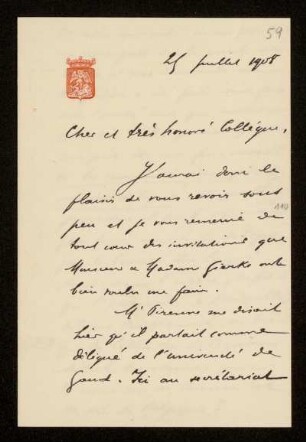 59
25 juillet 1908
Cher et très honoré Collègue,
J'aurai donc le
plaisir de vous revoir sous
peu et je vous remercie de
tout cœur des invitations que
Monsieur et Madame Gierke ont
bien voulu me faire.
Mr Pirenne me disait
hier qu'il partait comme
délégué de l'université de
Gand. Ici au secrétariat